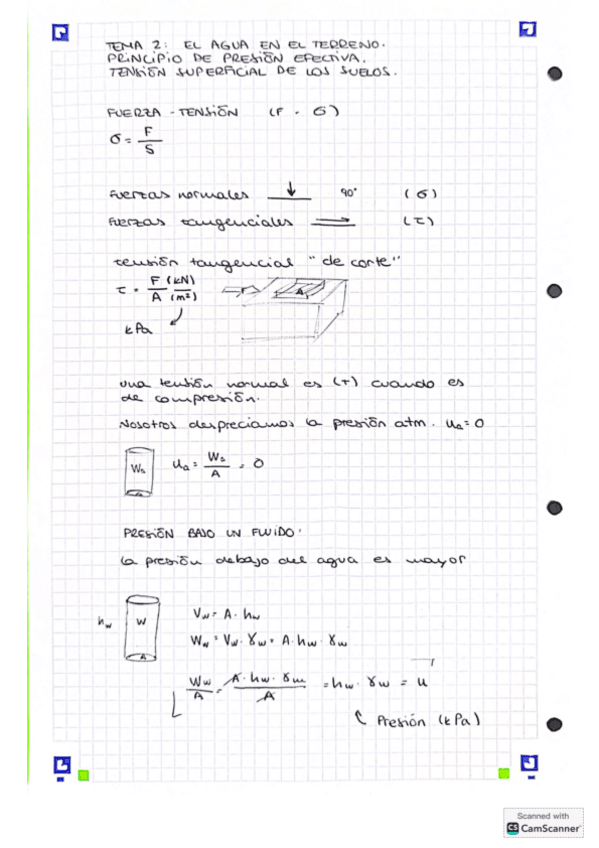 TEMA 2: EL AGUA EN EL TERRENO.
PRINCIPIO DE PRESIÓN EFECTIVA.
TENSIÓN SUPERFICIAL DE LOS SUELOS.
FUERZA - TENSIÓN (F - σ)
σ = F / S
Fuerzas normales ↓ 90° (σ)
Fuerzas tangenciales (τ)
tensión tangencial "de corte"
τ = F (kN) / A (m²)
A
kPa
una tensión normal es (+) cuando es
de compresión.
Nosotros despreciamos la presión atm. ua = 0
Wa ua = Wa / A = 0
A
PRESIÓN BAJO UN FLUIDO.
la presión debajo del agua es mayor
hw W Vw = A · hw
A Ww = Vw · γw = A · hw · γw
Ww / A = A · hw · γw / A = hw · γw = u
Presión (kPa)
Scanned with
CS CamScanner